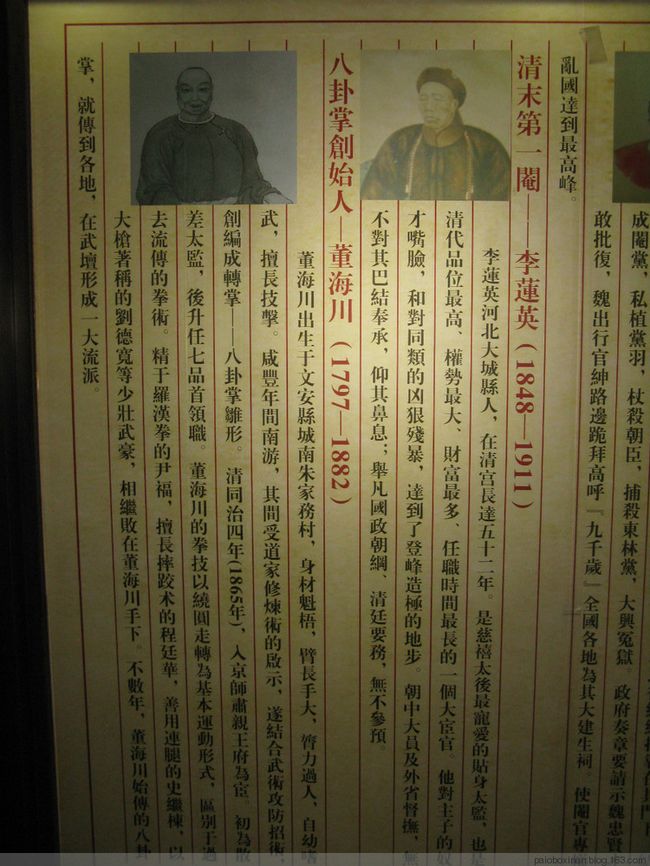 成閹黨，私植黨羽，杖殺朝臣，捕殺東林黨，大興冤獄 政府奏章要請示魏忠賢
敢批復，魏出行官紳路邊跪拜高呼『九千歲』全國各地為其大建生祠。使閹官專
亂國達到最高峰。
清末第一閹——李蓮英（1848—1911）
李蓮英河北大城縣人，在清宮長達五十二年。是慈禧太後最寵愛的貼身太監，也是
清代品位最高、權勢最大、財富最多、任職時間最長的一個大宦官。他對主子的奴
才嘴臉，和對同類的凶狠殘暴，達到了登峰造極的地步。朝中大員及外省督撫，無
不對其巴結奉承，仰其鼻息；舉凡國政朝綱、清廷要務，無不參預。
八卦掌創始人—董海川（1797—1882）
董海川出生于文安縣城南朱家務村，身材魁梧，臂長手大，膂力過人，自幼嗜
武，擅長技擊。咸豐年間南游，其間受道家修煉術的啟示，遂結合武術攻防招術，
創編成轉掌——八卦掌雛形。清同治四年(1865年)，入京師肅親王府為宦。初為散
差太監，後升任七品首領職。董海川的拳技以繞圓走轉為基本運動形式，區別于過
去流傳的拳術。精于羅漢拳的尹福，擅長摔跤术的程廷華，善用連腿的史繼棟，以
大槍著稱的劉德寬等少壯武豪，相繼敗在董海川手下。不數年，董海川始傳的八卦
掌，就傳到各地，在武壇形成一大流派。
paioboxinan.blog.163.com